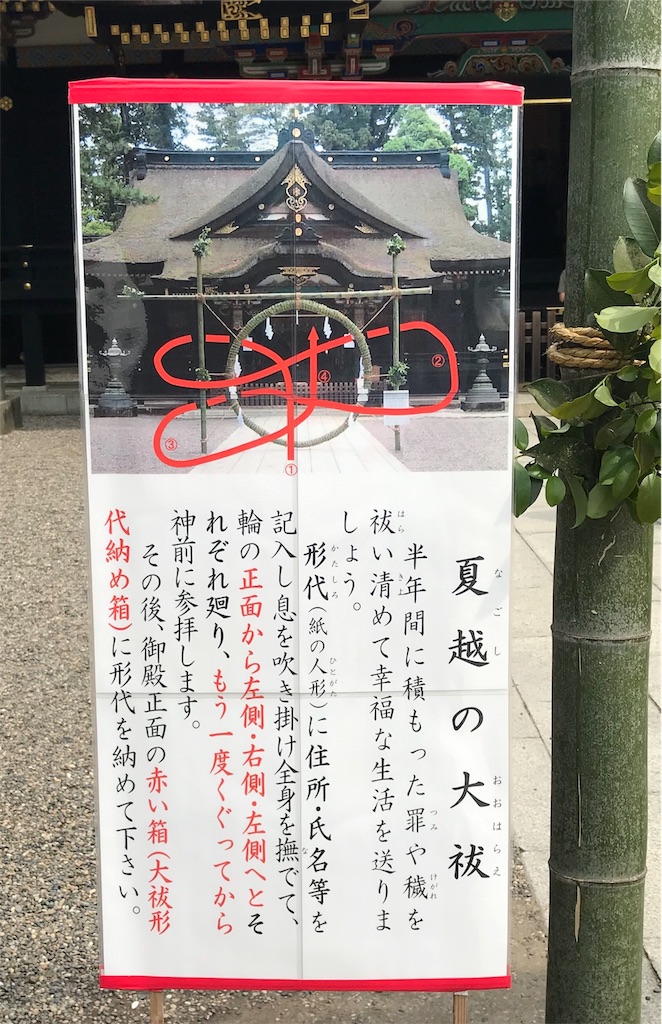 ①
②
③
④
夏越の大祓
なごし
おおはらえ
半年間に積もった罪や穢を
つみ
けがれ
祓い清めて幸福な生活を送りま
はら
きよ
しょう。
形代(紙の人形)に住所・氏名等を
かたしろ
ひとがた
記入し息を吹き掛け全身を撫でて、
な
輪の正面から左側・右側・左側へとそ
れぞれ廻り、もう一度くぐってから
神前に参拝します。
その後、御殿正面の赤い箱(大祓形
代納め箱)に形代を納めて下さい。